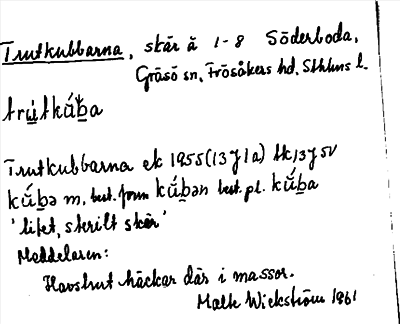 Trutkubbarna, skär å 1-8 Söderboda,
Gräsö sn, Frösåkers hd, Sthlms l.
trùtkúb̲a
Trutkubbarna ek 1955 (13J1a) tk 13J5V
kúb̲ə m, best. form kúb̲ən best. pl. kúb̲a
'litet, skrilt skär'
Meddelaren:
Havstrut häckar där i massor.
Mats Wickström 1961